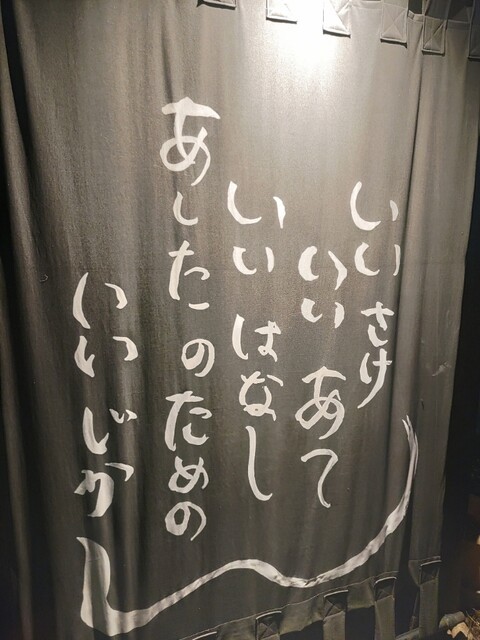 いいさけ
いい あて
いい はなし
あしたのための
いい じかん